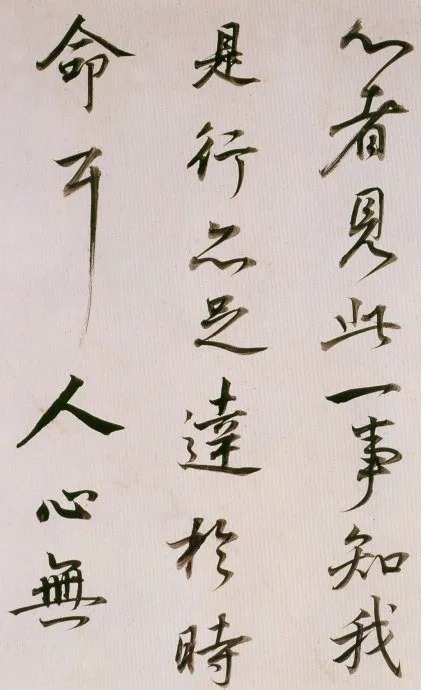 心者見此一事知我
是行亦足達於時
命耳人心無